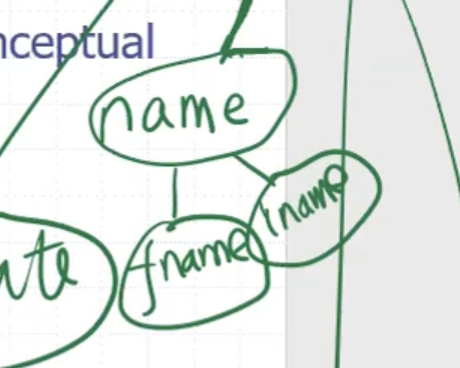 nceptual
name
lname
fname